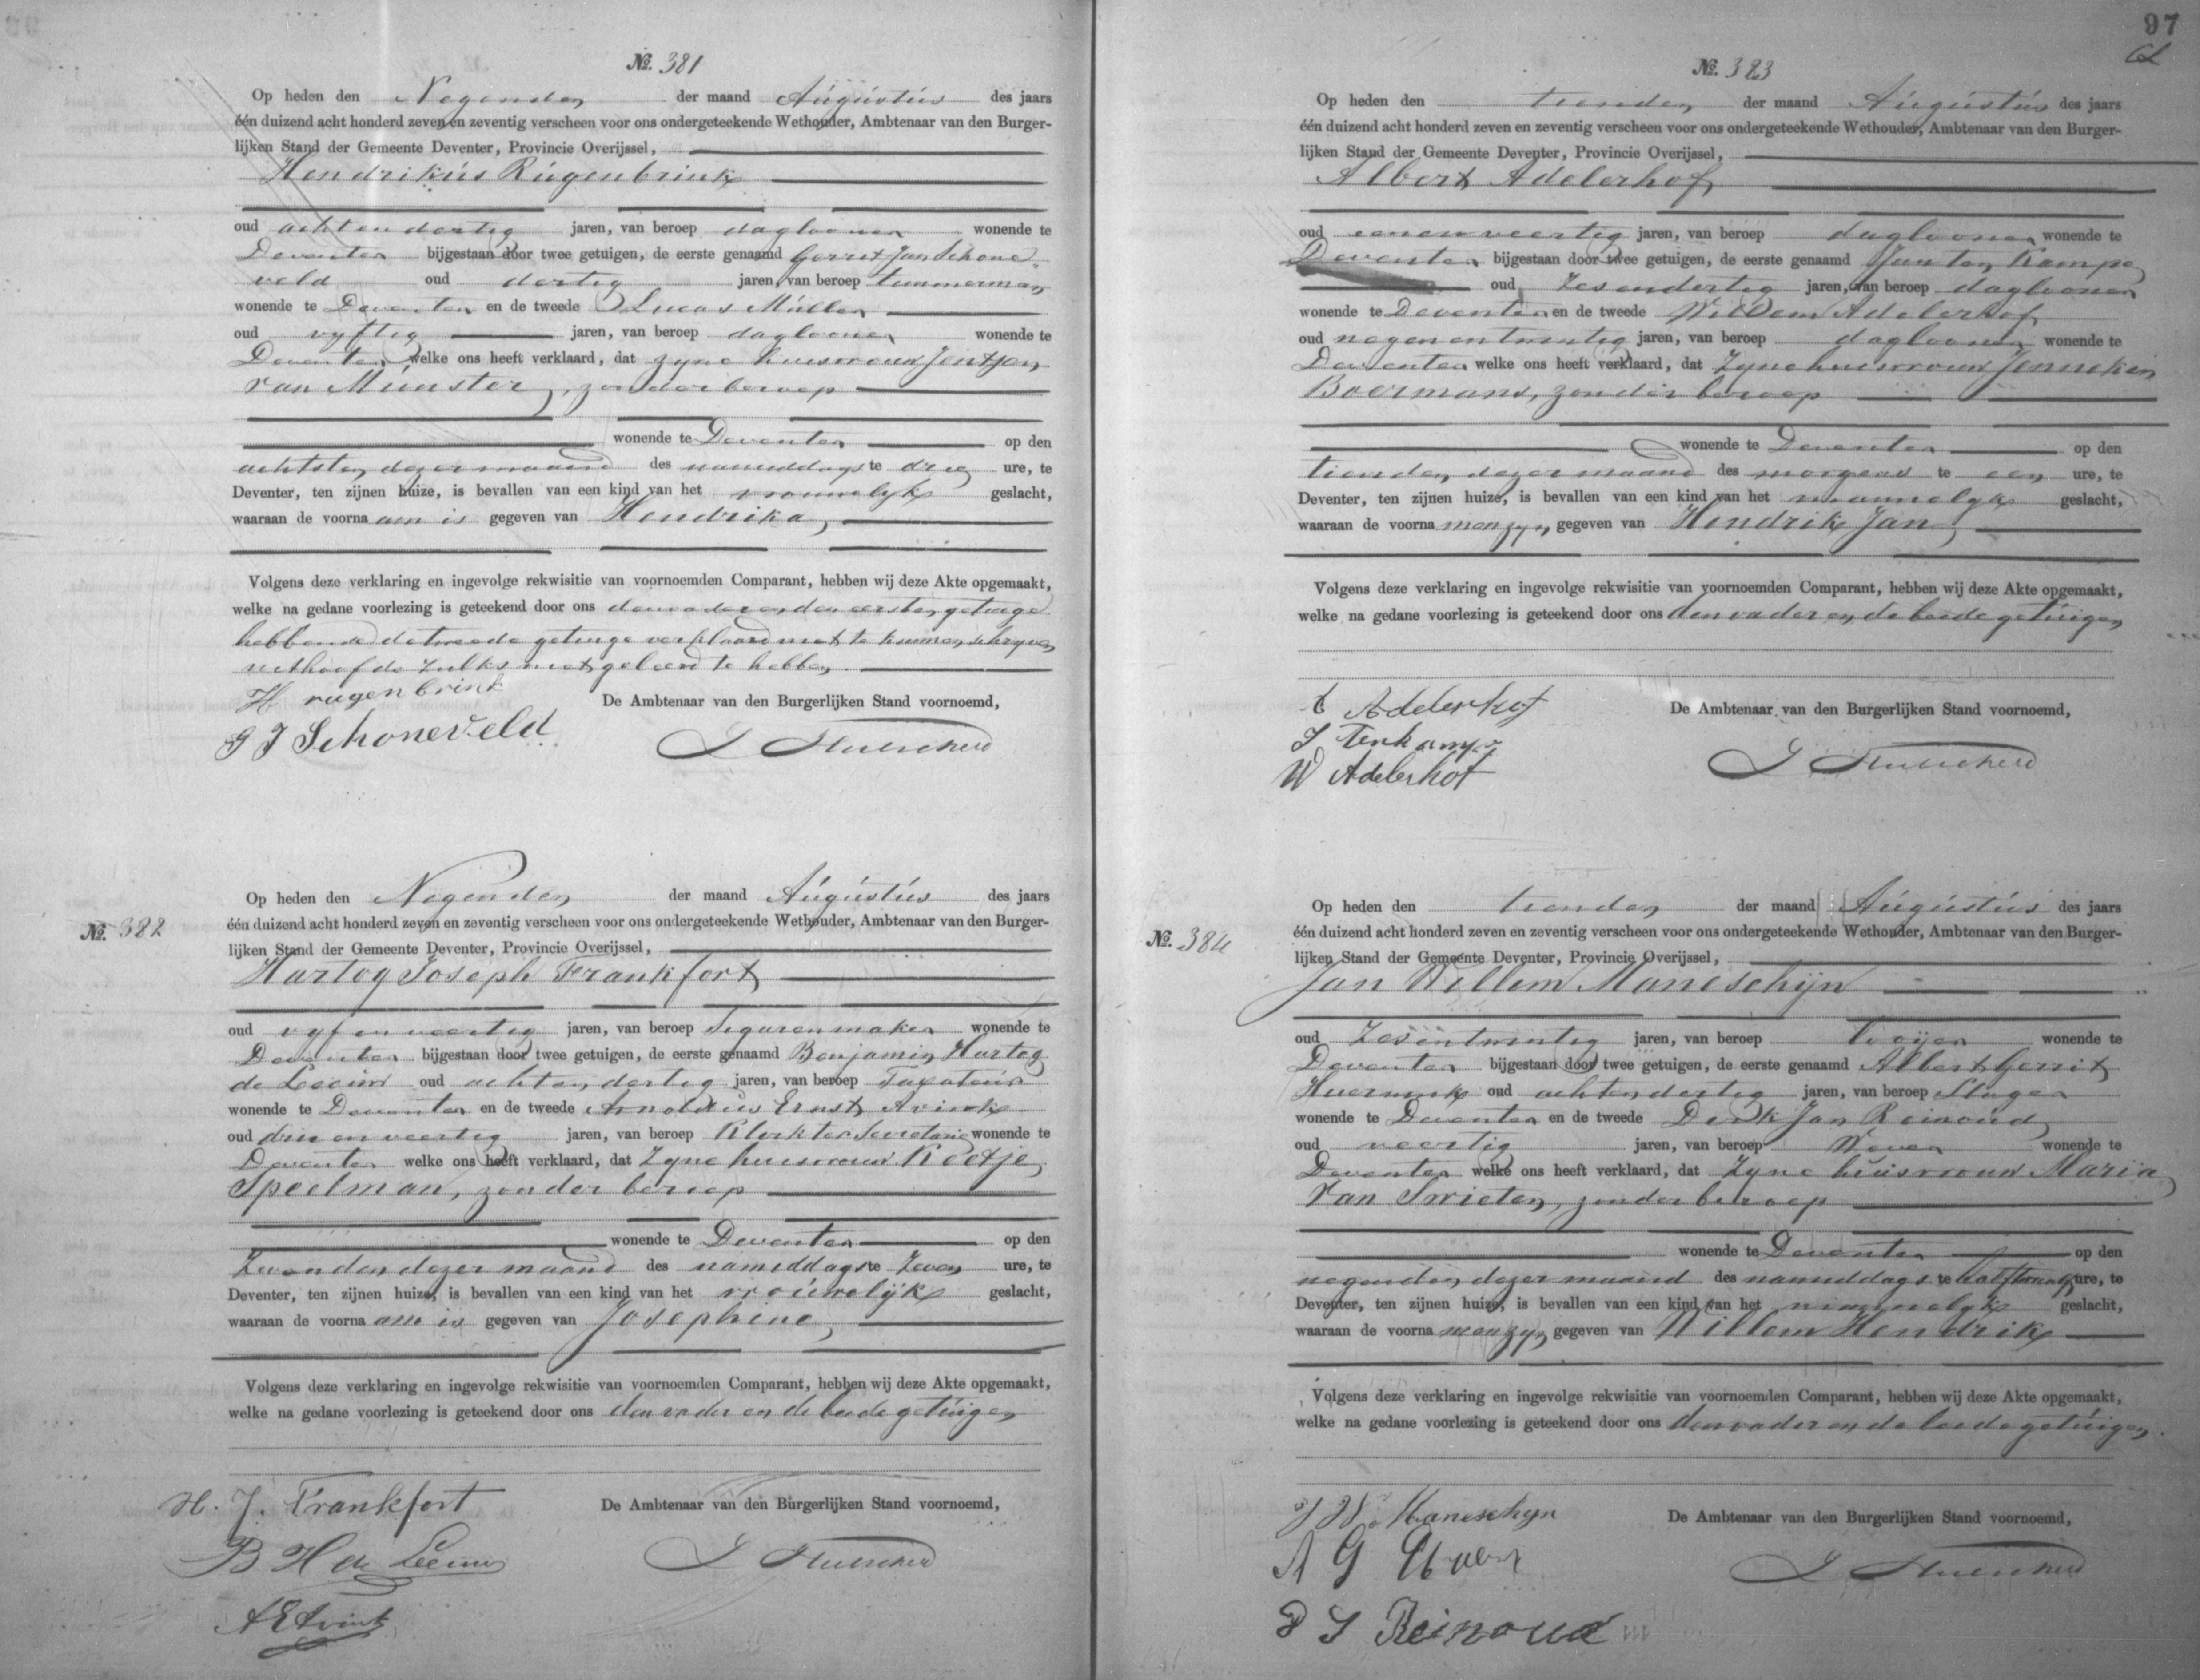 №. 381
Op heden den Negenden der maand Augustus des jaars
één duizend acht honderd zeven en zeventig verscheen voor ons ondergeteekende Wethouder, Ambtenaar van den Burger-
lijken Stand der Gemeente Deventer, Provincie Overijssel,
Hendrikus Rugenbrink
oud achtendertig jaren, van beroep daglooner wonende te
Deventer bijgestaan door twee getuigen, de eerste genaamd Gerrit Jan Schone-
veld oud dertig jaren, van beroep timmerman
wonende te Deventer en de tweede Lucas Müller
oud vyftig jaren, van beroep daglooner wonende te
Deventer welke ons heeft verklaard, dat zyne huisvrouw Jentjen
van Munster, zonder beroep
wonende te Deventer op den
achtsten dezer maand des namiddags te drie ure, te
Deventer, ten zijnen huize, is bevallen van een kind van het vrouwelyk geslacht,
waaraan de voornaam is gegeven van Hendrika,
Volgens deze verklaring en ingevolge rekwisitie van voornoemden Comparant, hebben wij deze Akte opgemaakt,
welke na gedane voorlezing is geteekend door ons den vader en den eersten getuige
hebbende de tweede getuige verklaard niet te kunnen schryven
uithoofde zulks niet geleerd te hebben
H rugenbrink
De Ambtenaar van den Burgerlijken Stand voornoemd,
G J Schoneveld
№. 382
Op heden den Negenden der maand Augustus des jaars
één duizend acht honderd zeven en zeventig verscheen voor ons ondergeteekende Wethouder, Ambtenaar van den Burger-
lijken Stand der Gemeente Deventer, Provincie Overijssel,
Hartog Joseph Frankfort
oud vyfenveertig jaren, van beroep Sigarenmaker wonende te
Deventer bijgestaan door twee getuigen, de eerste genaamd Benjamin Hartog
de Leeuw oud achtendertig jaren, van beroep Taxateur
wonende te Deventer en de tweede Arnoldus Ernst Avink
oud drie en veertig jaren, van beroep Klerk ter Secretarie wonende te
Deventer welke ons heeft verklaard, dat Zyne huisvrouw Keetje
Speelman, zonder beroep
wonende te Deventer op den
Zevenden dezer maand des namiddags te Zeven ure, te
Deventer, ten zijnen huize, is bevallen van een kind van het vrouwelijk geslacht,
waaraan de voornaam is gegeven van Josephine,
Volgens deze verklaring en ingevolge rekwisitie van voornoemden Comparant, hebben wij deze Akte opgemaakt,
welke na gedane voorlezing is geteekend door ons den vader en de beide getuigen
H. J. Frankfort
De Ambtenaar van den Burgerlijken Stand voornoemd,
B H de Leeuw
A E Avink
97
№. 383
Op heden den tienden der maand Augustus des jaars
één duizend acht honderd zeven en zeventig verscheen voor ons ondergeteekende Wethouder, Ambtenaar van den Burger-
lijken Stand der Gemeente Deventer, Provincie Overijssel,
Albert Adelerhof
oud eenenveertig jaren, van beroep daglooner wonende te
Deventer bijgestaan door twee getuigen, de eerste genaamd Jan ten Kampe
oud Zesendertig jaren, van beroep daglooner
wonende te Deventer en de tweede Willem Adelerhof
oud negenentwintig jaren, van beroep daglooner wonende te
Deventer welke ons heeft verklaard, dat Zyne huisvrouw Jenneken
Boermans, zonder beroep
wonende te Deventer op den
tienden dezer maand des morgens te een ure, te
Deventer, ten zijnen huize, is bevallen van een kind van het mannelyk geslacht,
waaraan de voornamen zyn gegeven van Hendrik Jan
Volgens deze verklaring en ingevolge rekwisitie van voornoemden Comparant, hebben wij deze Akte opgemaakt,
welke na gedane voorlezing is geteekend door ons den vader en de beide getuigen
A Adelerhof
De Ambtenaar van den Burgerlijken Stand voornoemd,
J Tenkampe
W Adelerhof
№. 384
Op heden den tienden der maand Augustus des jaars
één duizend acht honderd zeven en zeventig verscheen voor ons ondergeteekende Wethouder, Ambtenaar van den Burger-
lijken Stand der Gemeente Deventer, Provincie Overijssel,
Jan Willem Maneschijn
oud Zesentwintig jaren, van beroep looijer wonende te
Deventer bijgestaan door twee getuigen, de eerste genaamd Albert Gerrit
oud achtendertig jaren, van beroep Slager
wonende te Deventer en de tweede Derk Jan Reinoud
oud veertig jaren, van beroep Wever wonende te
Deventer welke ons heeft verklaard, dat Zyne huisvrouw Maria
van Swieten, zonder beroep
wonende te Deventer op den
negenden dezer maand des namiddags te half twaalf ure, te
Deventer, ten zijnen huize, is bevallen van een kind van het mannelyk geslacht,
waaraan de voornamen zyn gegeven van Willem Hendrik
Volgens deze verklaring en ingevolge rekwisitie van voornoemden Comparant, hebben wij deze Akte opgemaakt,
welke na gedane voorlezing is geteekend door ons den vader en de beide getuigen
J W Maneschyn
De Ambtenaar van den Burgerlijken Stand voornoemd,
A G
D J Reinoud